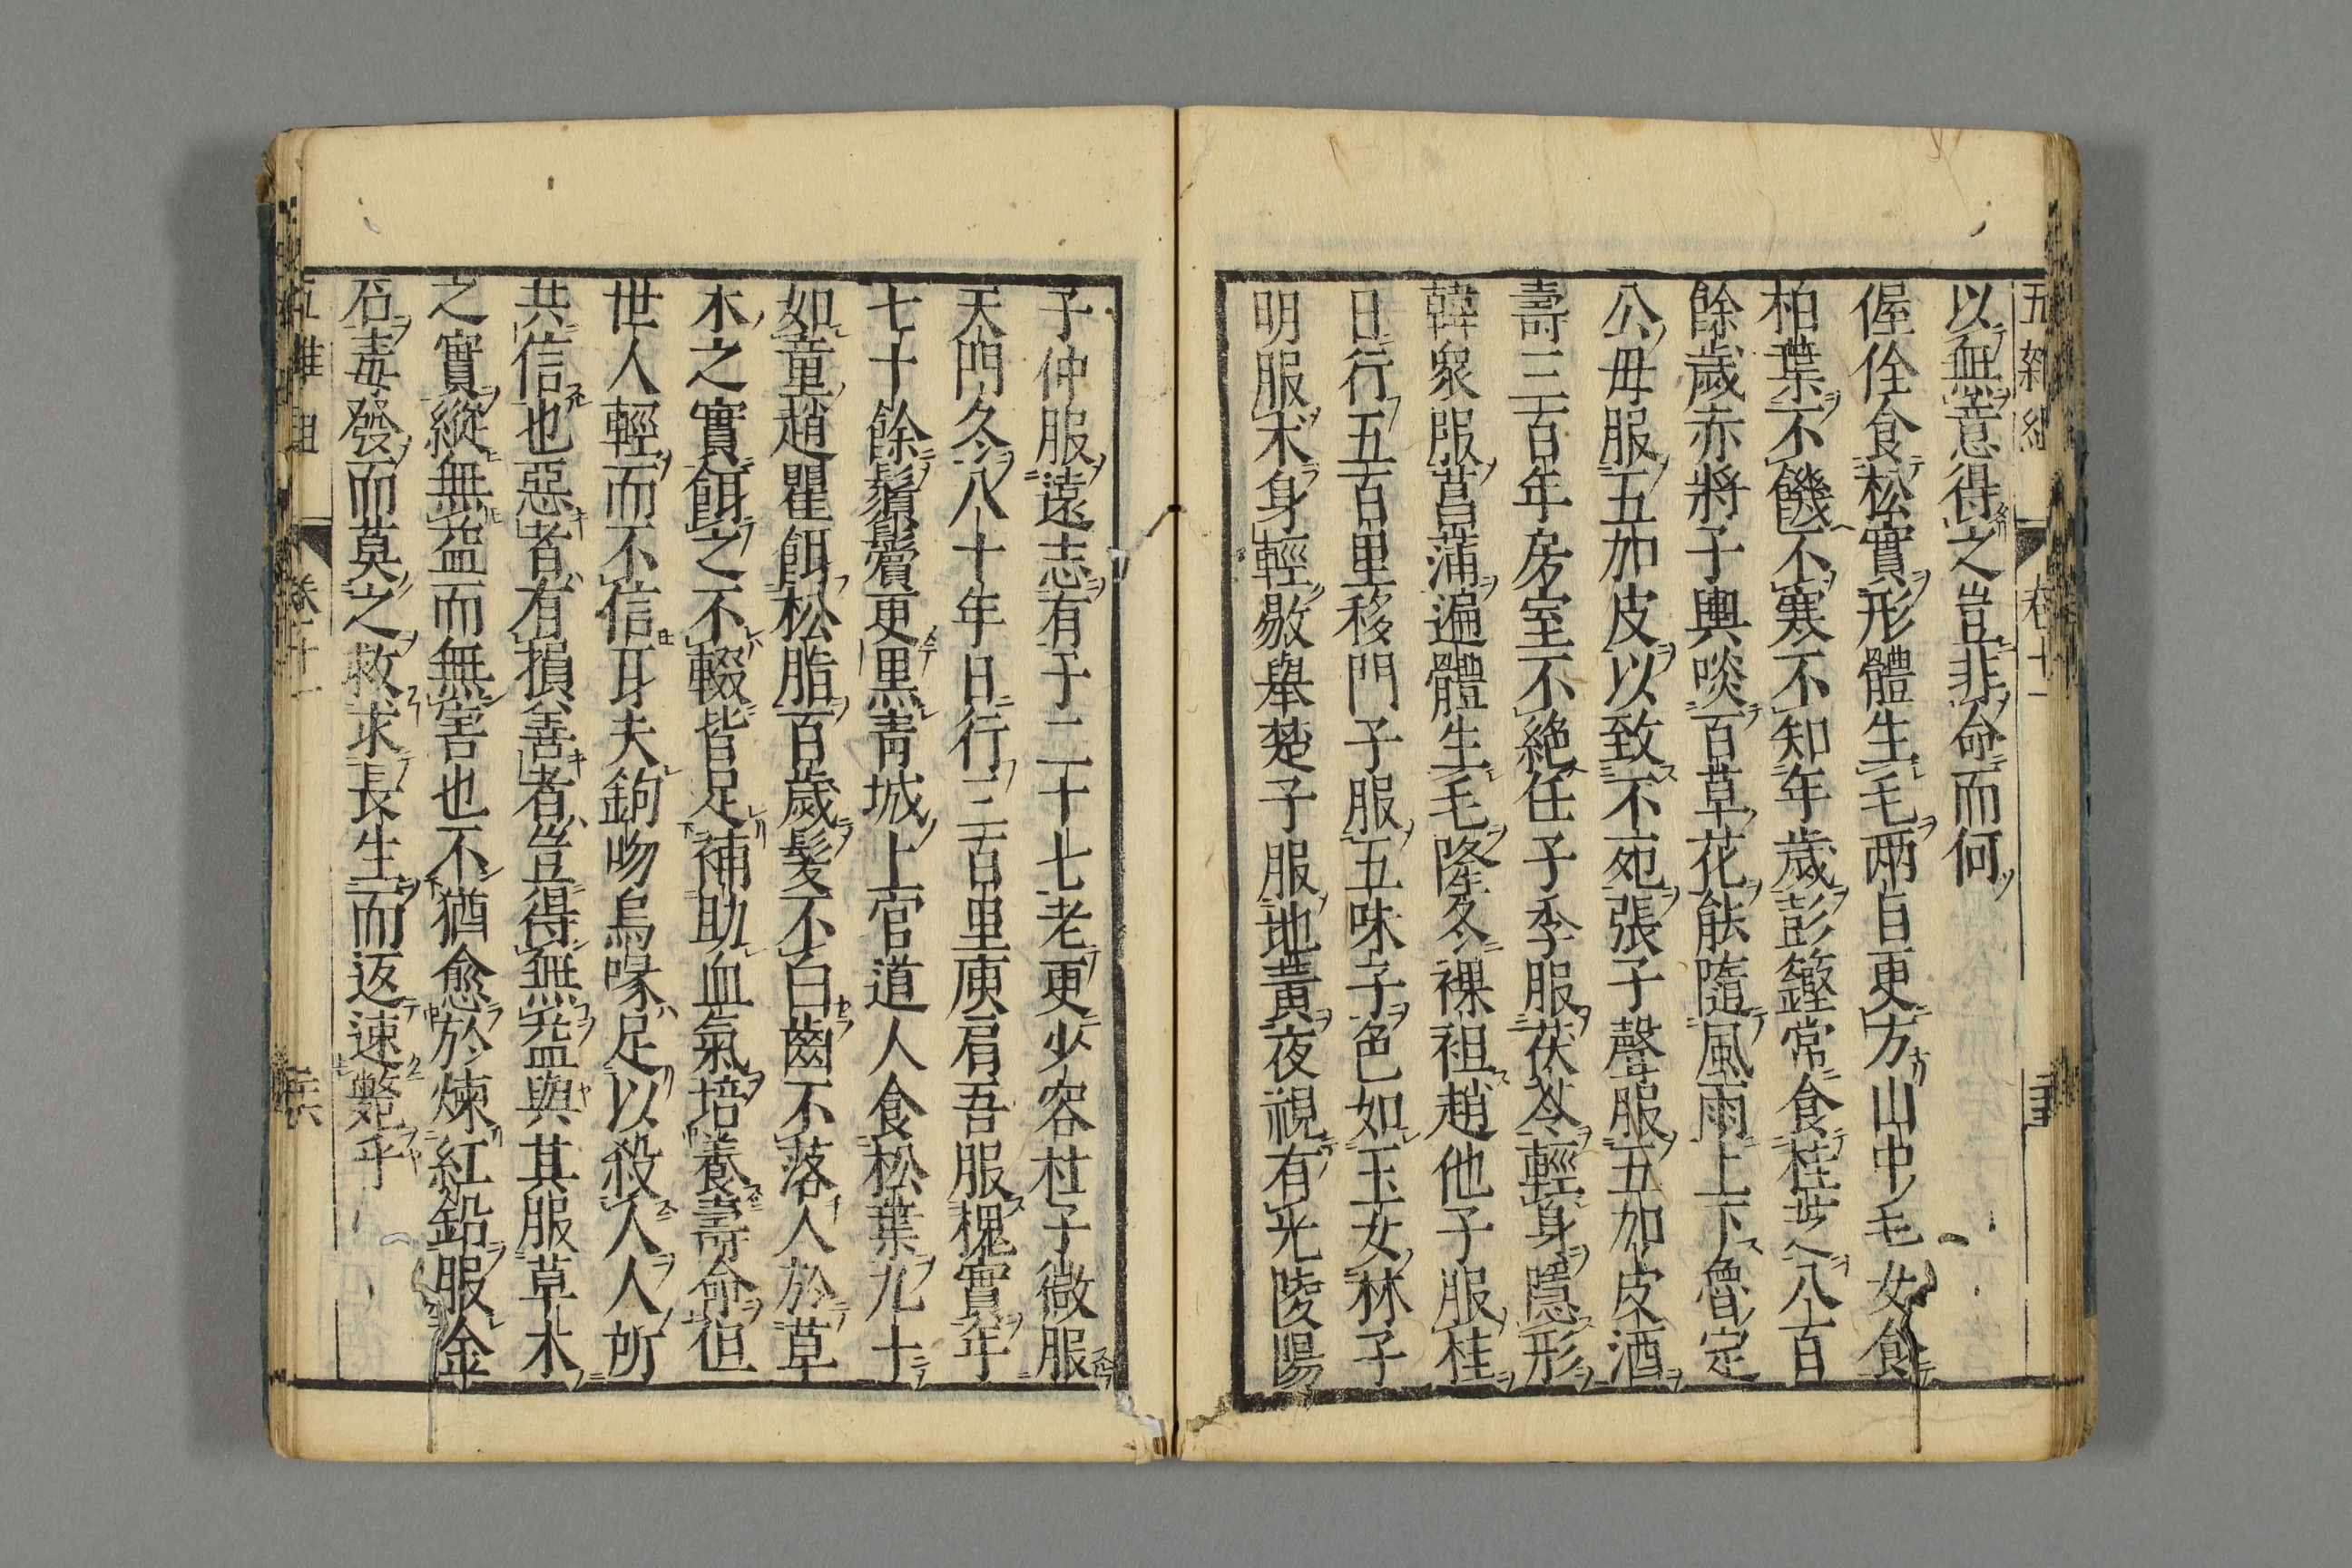 五雜組
卷十一
以無意得之豈非命而何
偓佺食松實形體生毛兩目更方山中毛女食
柏葉不饑不寒不知年歲彭鏗常食桂芝八百
餘歲赤將子輿啖百草花能隨風雨上下魯定
公母服五加皮以致不死張子聲服五加皮酒
壽三百年房室不絕任子季服茯苓輕身隱形
韓衆服菖蒲遍體生毛隆冬裸袒趙他子服桂
日行五百里移門子服五味子色如玉女林子
明服朮身輕敭舉楚子服地黃夜視有光陵陽
子仲服遠志有子二十七老更少容杜子微服
天門冬八十年日行三百里庾肩吾服槐實年
七十餘鬚鬢更黒青城上官道人食松葉九十
如童趙瞿餌松脂百歲髮不白齒不落人於草
木之實餌之不輟皆足補助血氣培養壽命但
世人輕而不信耳夫鉤吻烏喙足以殺人人所
共信也惡者有損善者豈得無益與其服草木
之實縱無益而無害也不猶愈於煉紅鉛服金
石毒發而莫之救求長生而返速斃乎
五雜組
卷十一